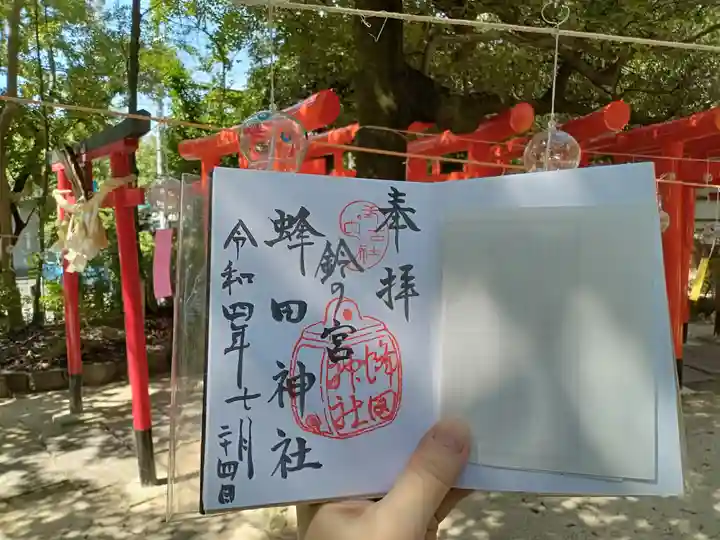 奉拝
鈴の宮
蜂田神社
令和四年七月二十四日
蜂田
神社